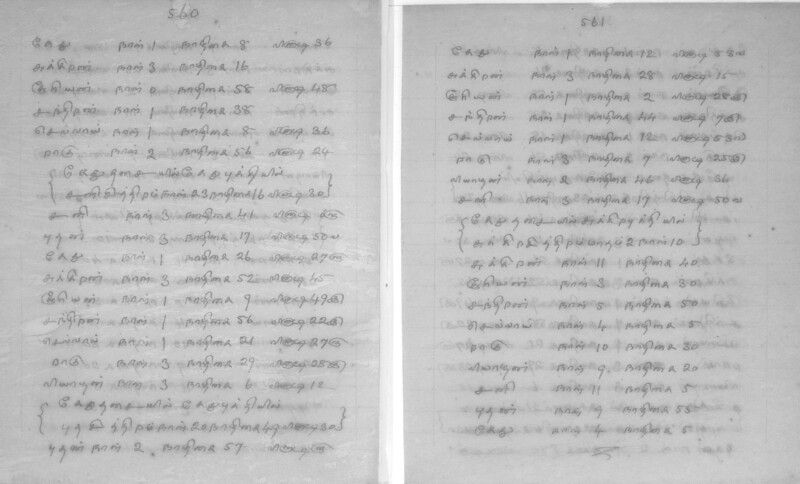 560
கேது நாள் 1 நாழிகை 8 வினாடி 36
சுக்கிரன் நாள் 3 நாழிகை 16
சூரியன் நாள் 0 நாழிகை 58 வினாடி 48
சந்திரன் நாள் 1 நாழிகை 38
செவ்வாய் நாள் 1 நாழிகை 8 வினாடி 36
ராகு நாள் 2 நாழிகை 56 வினாடி 24
கேதுதசையில் கேதுபுக்தியில்
சனி நாள் 23 நாழிகை 16 வினாடி 30
சனி நாள் 3 நாழிகை 41 வினாடி
புதன் நாள் 3 நாழிகை 17 வினாடி 50
கேது நாள் 1 நாழிகை 26 வினாடி 27
சுக்கிரன் நாள் 3 நாழிகை 52 வினாடி 45
சூரியன் நாள் 1 நாழிகை 9 வினாடி 49
சந்திரன் நாள் 1 நாழிகை 56 வினாடி 22
செவ்வாய் நாள் 1 நாழிகை 21 வினாடி 27
ராகு நாள் 3 நாழிகை 29 வினாடி 25
வியாழன் நாள் 3 நாழிகை 6 வினாடி 12
கேதுதசையில் கேதுபுக்தியில்
புத நாள் 20 நாழிகை 49 வினாடி 30
புதன் நாள் 2 நாழிகை 57 வினாடி
561
கேது நாள் 1 நாழிகை 12 வினாடி 53
சுக்கிரன் நாள் 3 நாழிகை 28 வினாடி 15
சூரியன் நாள் 1 நாழிகை 2 வினாடி 28
சந்திரன் நாள் 1 நாழிகை 44 வினாடி 7
செவ்வாய் நாள் 1 நாழிகை 12 வினாடி 53
ராகு நாள் 3 நாழிகை 7 வினாடி 25
வியாழன் நாள் 2 நாழிகை 46 வினாடி 36
சனி நாள் 3 நாழிகை 17 வினாடி 50
கேதுதசையில் சுக்கிரபுக்தியில்
சுக்கிர மாதம் 2 நாள் 10
சுக்கிரன் நாள் 11 நாழிகை 40
சூரியன் நாள் 3 நாழிகை 30
சந்திரன் நாள் 5 நாழிகை 50
செவ்வாய் நாள் 4 நாழிகை 5
ராகு நாள் 10 நாழிகை 30
வியாழன் நாள் 9 நாழிகை 20
சனி நாள் 11 நாழிகை 5
புதன் நாள் 9 நாழிகை 55
கேது நாள் 4 நாழிகை 5